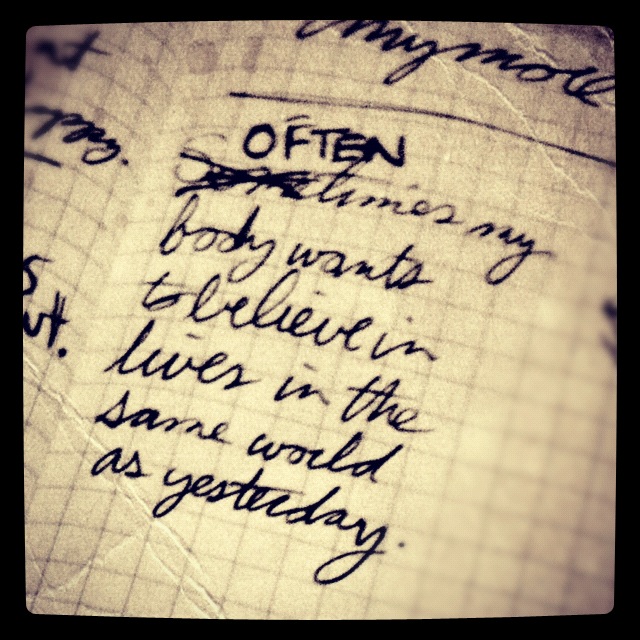 anymore
OFTEN
Sometimes my
body wants
to believe in
lives in the
same world
as yesterday.